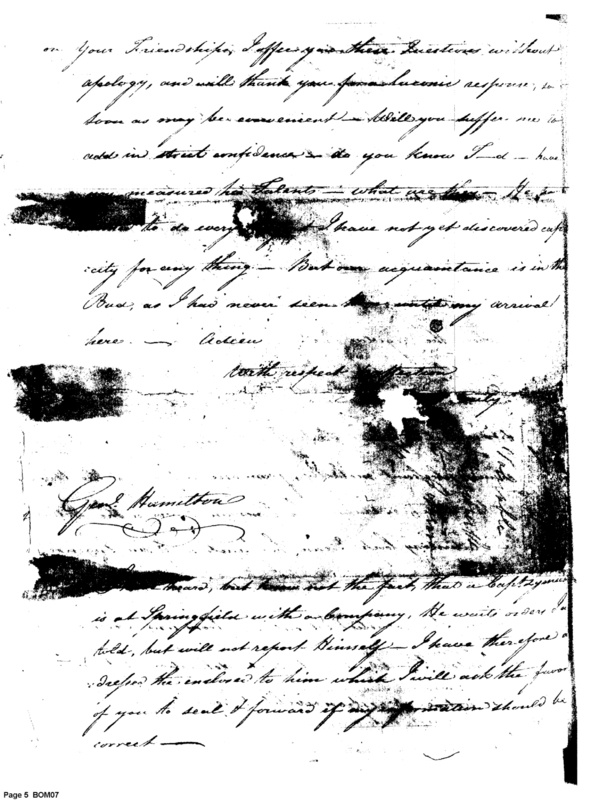 on your Friendship, I offer you these Questions without
apology, and will thank you for a Laconic response, so
soon as may be convenient — Will you suffer me to
add in strict confidence — do you know T—d — have
measured his Talents — what are they — He
to do every I have not yet discovered capa
:city for any thing — But our acquaintance is in the
Bud, as I had never seen until my arrival
here. — Adieu
With respect
Genl Hamilton
heard, but know not the fact, that a Capt
is at Springfield with a Company, He waits orders
told, but will not report Himself — I have therefore a
:dressed the enclosed to him which I will ask the favor
of you to seal & forward if my information should be
correct —
Page 5 BOM07